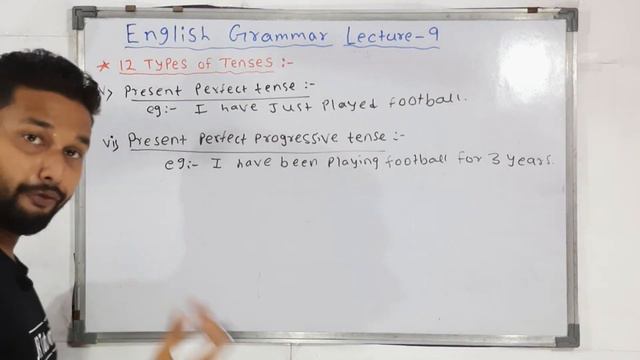 English Grammar Lecture-9
* 12 Types of Tenses :-
v> Present Perfect tense :-
eg:- I have Just Played football.
vi> Present Perfect Progressive tense :-
eg:- I have been Playing football for 3 years.